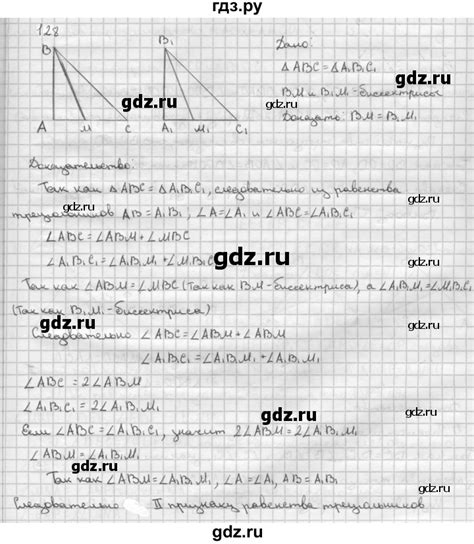 гдз.ру
128
B
B₁
Дано:
△ABC = △A₁B₁C₁
BM и B₁M₁ - биссектрисы
Доказать: BM = B₁M₁
A M C A₁ M₁ C₁
Доказательство:
Так как △ABC = △A₁B₁C₁, следовательно из равенства
треугольников AB = A₁B₁, ∠A = ∠A₁ и ∠ABC = ∠A₁B₁C₁
∠ABC = ∠ABM + ∠MBC
∠A₁B₁C₁ = ∠A₁B₁M₁ + ∠M₁B₁C₁
Так как ∠ABM = ∠MBC (так как BM - биссектриса), а ∠A₁B₁M₁ = ∠M₁B₁C₁
(так как B₁M₁ - биссектриса)
Следовательно ∠ABC = ∠ABM + ∠ABM
∠A₁B₁C₁ = ∠A₁B₁M₁ + ∠A₁B₁M₁
∠ABC = 2∠ABM
∠A₁B₁C₁ = 2∠A₁B₁M₁
Если ∠ABC = ∠A₁B₁C₁, значит 2∠ABM = 2∠A₁B₁M₁
∠ABM = ∠A₁B₁M₁
Так как ∠ABM = ∠A₁B₁M₁, ∠A = ∠A₁, AB = A₁B₁
Следовательно II признаку равенства треугольников
gdz.ru
gdz.ru
gdz.ru
gdz.ru
gdz.ru
gdz.ru
gdz.ru
gdz.ru
gdz.ru